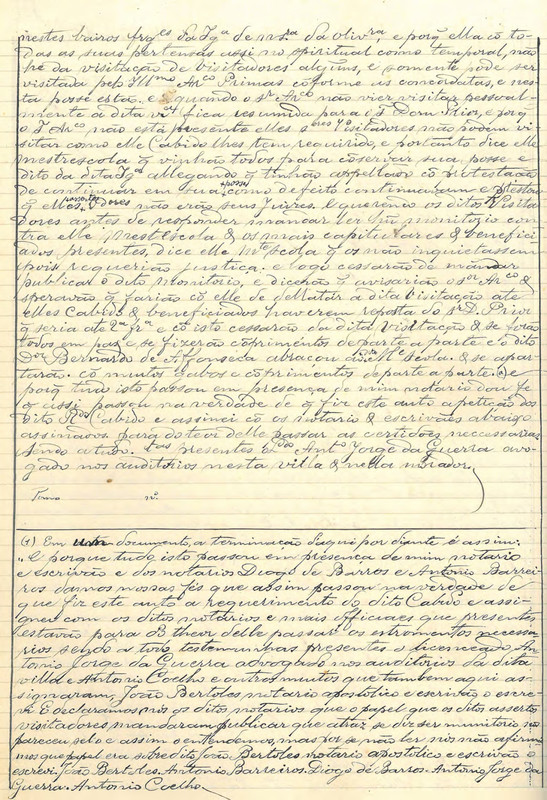 nestes bairos frg.es da Ig.a de n.sa s.ra da olivr.a, e porq̃ ella cõ to-
das as suas pertensas assi no spiritual como temporal, não
he da visitação de visitadores alguns, e somente pode ser
visitada pelo Ill.mo Ar.co Primas cõforme as concordatas, e nes-
ta posse esta. e quando o s.r Ar.co não vier visitar pessoal-
mente a dita vis.am fica resumida para o Dom Prior, e porq̃
o s.r Ar.co não está presente elles s.ores Visitadores não podem vi-
sitar como elle Cabido lhes tem requirido, e portanto dice elle
mestrescola q̃ vinhão todos para cõservar sua posse e
dito da dita Ig.a allegando q̃ tinhão appellado cõ protestação
de continuar em sua posse como defeito continuaram e
q̃ elles s.ores não erão seus juizes. E querendo os ditos Visita-
dores antes de responder mandar ler hũ monitorio con-
tra elle Mestrescola & os mais capitulares & benefici-
ados presentes, dice elle M.e scola q̃ os não inquietassem
pois requerião justiça. e logo cessarão de mandar
publicar o dito monitorio, e dicerão q̃ avisarião o s.or Ar.co &
esperavão q̃ farião cõ elle de dellatar a dita visitação até
elles Cabido & beneficiados haverem reposta do s.r D. Prior
q̃ seria até 2.a fr.a e cõ isto cessarão da dita visitação & se forão
todos em paz e se fizerão cõprimentos de parte a parte e o dito
D.or Bernardo de Affonseca abraçou o dito M.e scola. & se apar-
tarão. cõ muitos cabos e cõprimentos de parte a parte. E
porq̃ tudo isto passou em presença de mim notario dou fe
q̃ assi passou na verdade de q̃ fiz este auto a petição do
dito R.do Cabido e assinei cõ os notario & escrivães abaixo
assinados. para do teor delle passar as certidões necessarias
sendo a tudo t.as presentes L.do Ant.o Jorge da Guerra avo-
gado nos auditorios nesta villa & nella morador.
Tomo n.o
(1) Em um documento, a terminação daqui por diante é assim:
„E porque tudo isto passou em presença de mim notario
e escrivão e dos notarios Diogo de Barros e Antonio Barrei-
ros damos nossas fés que assim passou na verdade de
que fiz este auto a requerimento do dito Cabido e assi-
gnei com os ditos notarios e mais officiaes que presentes
estavão para do theor delle passar os estromentos necessa-
rios sendo a tudo testemunhas presentes o licenceado An-
tonio Jorge da Guerra advogado nos auditorios da dita
villa e Antonio Coelho e outros muitos que tambem aqui as-
signaram, João Bertoles notario apostolico e escrivão o escre-
vi. E declaramos nós os ditos notarios que o papel que os ditos assertos
visitadores mandaram publicar que atraz se diz ser munitorio nos
pareceu sel-o e assim o entendemos, mas por se não ler nos não afirma-
mos que papel era sobredito João Bertoles notario apostolico e escrivão o
escrevi. João Bertoles. Antonio Barreiros. Diogo de Barros. Antonio Jorge da
Guerra. Antonio Coelho.